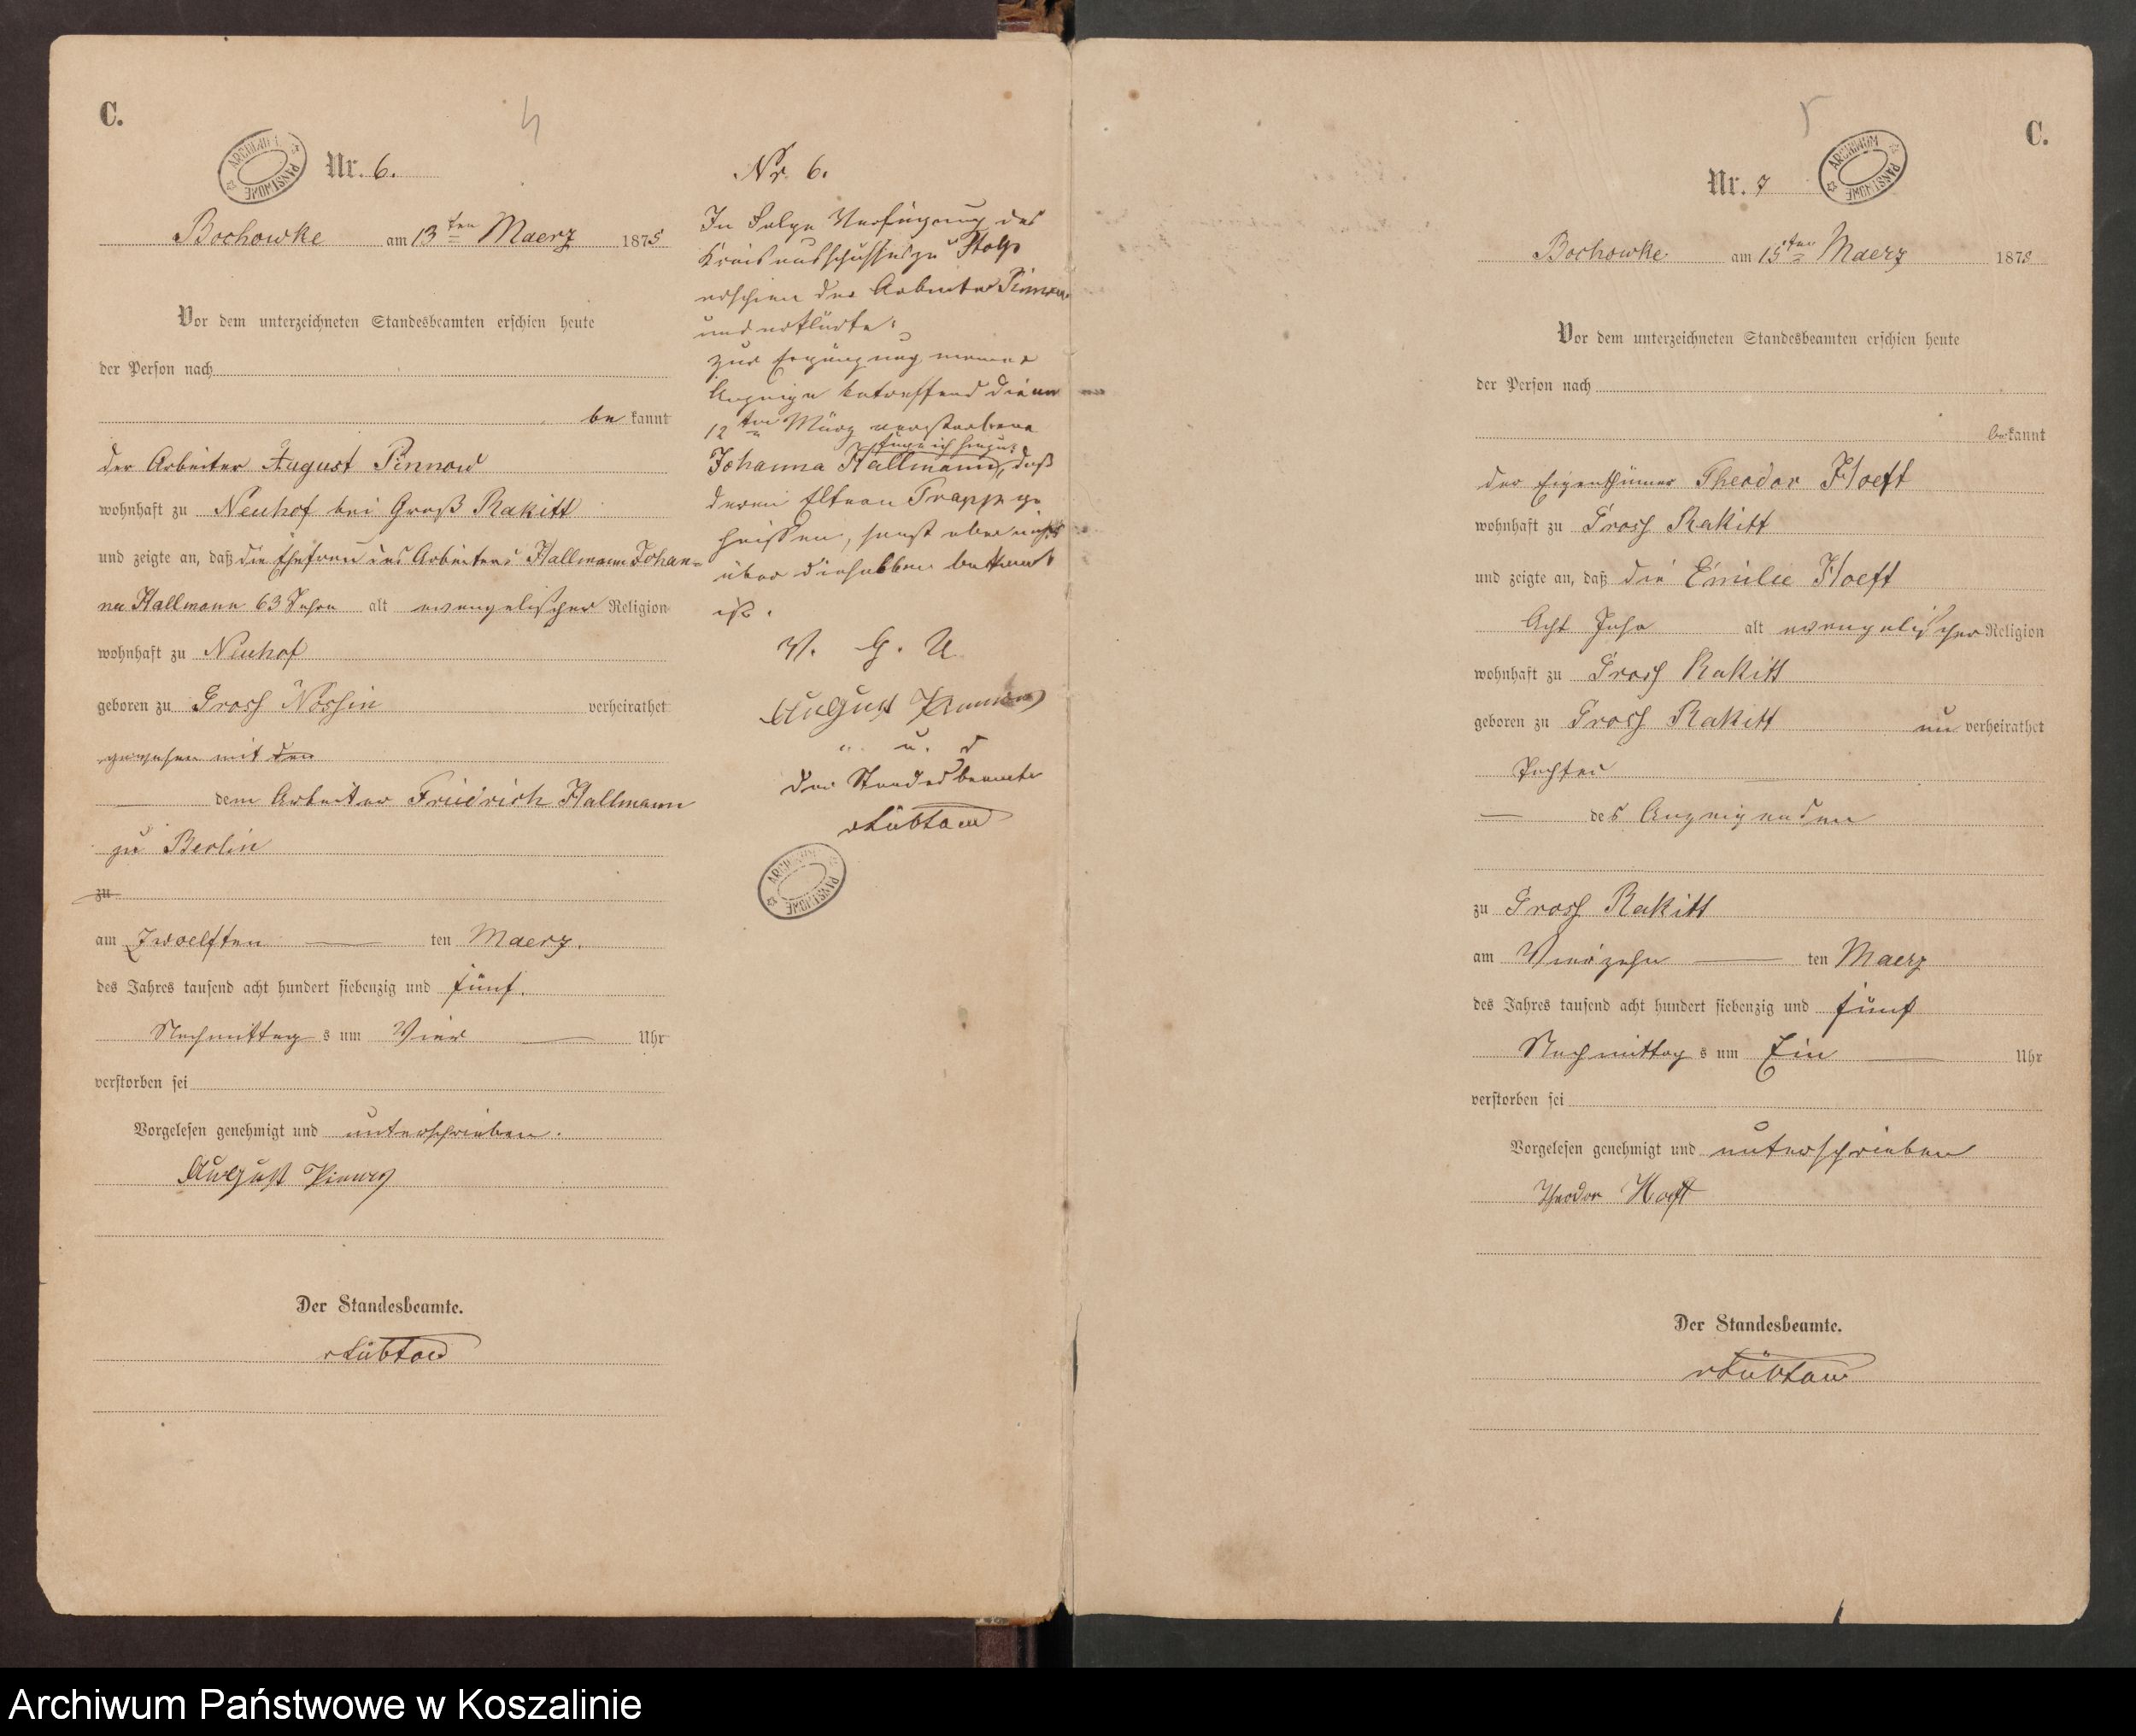 C.
4
ARCHIWUM PAŃSTWOWE
Nr. 6.
Bochowke am 13ten Maerz 1875
Vor dem unterzeichneten Standesbeamten erschien heute
der Person nach
be kannt
der Arbeiter August Pinnow
wohnhaft zu Neuhof bei Groß Rakitt
und zeigte an, daß die Ehefrau des Arbeiters Hallmann Johan-
na Hallmann 63 Jahre alt evangelischer Religion
wohnhaft zu Neuhof
geboren zu Gross Nossin verheirathet
gewesen mit den
dem Arbeiter Friedrich Hallmann
zu Berlin
zu
am Zwoelften ten Maerz.
des Jahres tausend acht hundert siebenzig und fünf.
Nachmittag s um Vier Uhr
verstorben sei
Vorgelesen genehmigt und unterschrieben.
August Pinnow
Der Standesbeamte.
vLübtow
Nr. 6.
In Folge Verfügung des
Kreisausschusses zu Stolp
erschien der Arbeiter Pinnow
und erklärte:
zur Ergänzung meiner
Anzeige betreffend die am
12ten März verstorbene
füge ich hinzu:
Johanna Hallmann, daß
deren Eltern Trapp ge
heissen, sonst aber nichts
über dieselben bekannt
ist.
V. G. U
August Pinnow
u.
Der Standesbeamte
vLübtow
ARCHIWUM PAŃSTWOWE
5
C.
Nr. 7
ARCHIWUM PAŃSTWOWE
Bochowke am 15ten Maerz 1875
Vor dem unterzeichneten Standesbeamten erschien heute
der Person nach
be kannt
der Eigenthümer Theodor Hoeft
wohnhaft zu Gross Rakitt
und zeigte an, daß die Emilie Hoeft
Acht Jahr alt evangelischer Religion
wohnhaft zu Gross Rakitt
geboren zu Gross Rakitt un verheirathet
Tochter
des Anzeigenden
zu Gross Rakitt
am Vierzehn ten Maerz
des Jahres tausend acht hundert siebenzig und fünf
Nachmittag s um Ein Uhr
verstorben sei
Vorgelesen genehmigt und unterschrieben
Theodor Hoeft
Der Standesbeamte.
vLübtow
Archiwum Państwowe w Koszalinie